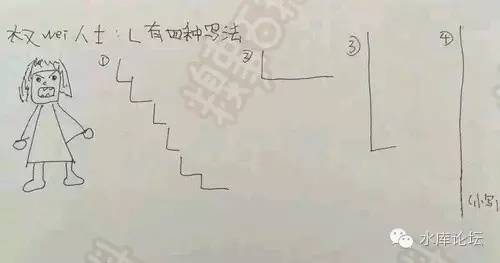 权wei人士：L有四种写法
① ② ③ ④
(小写)
水库论坛